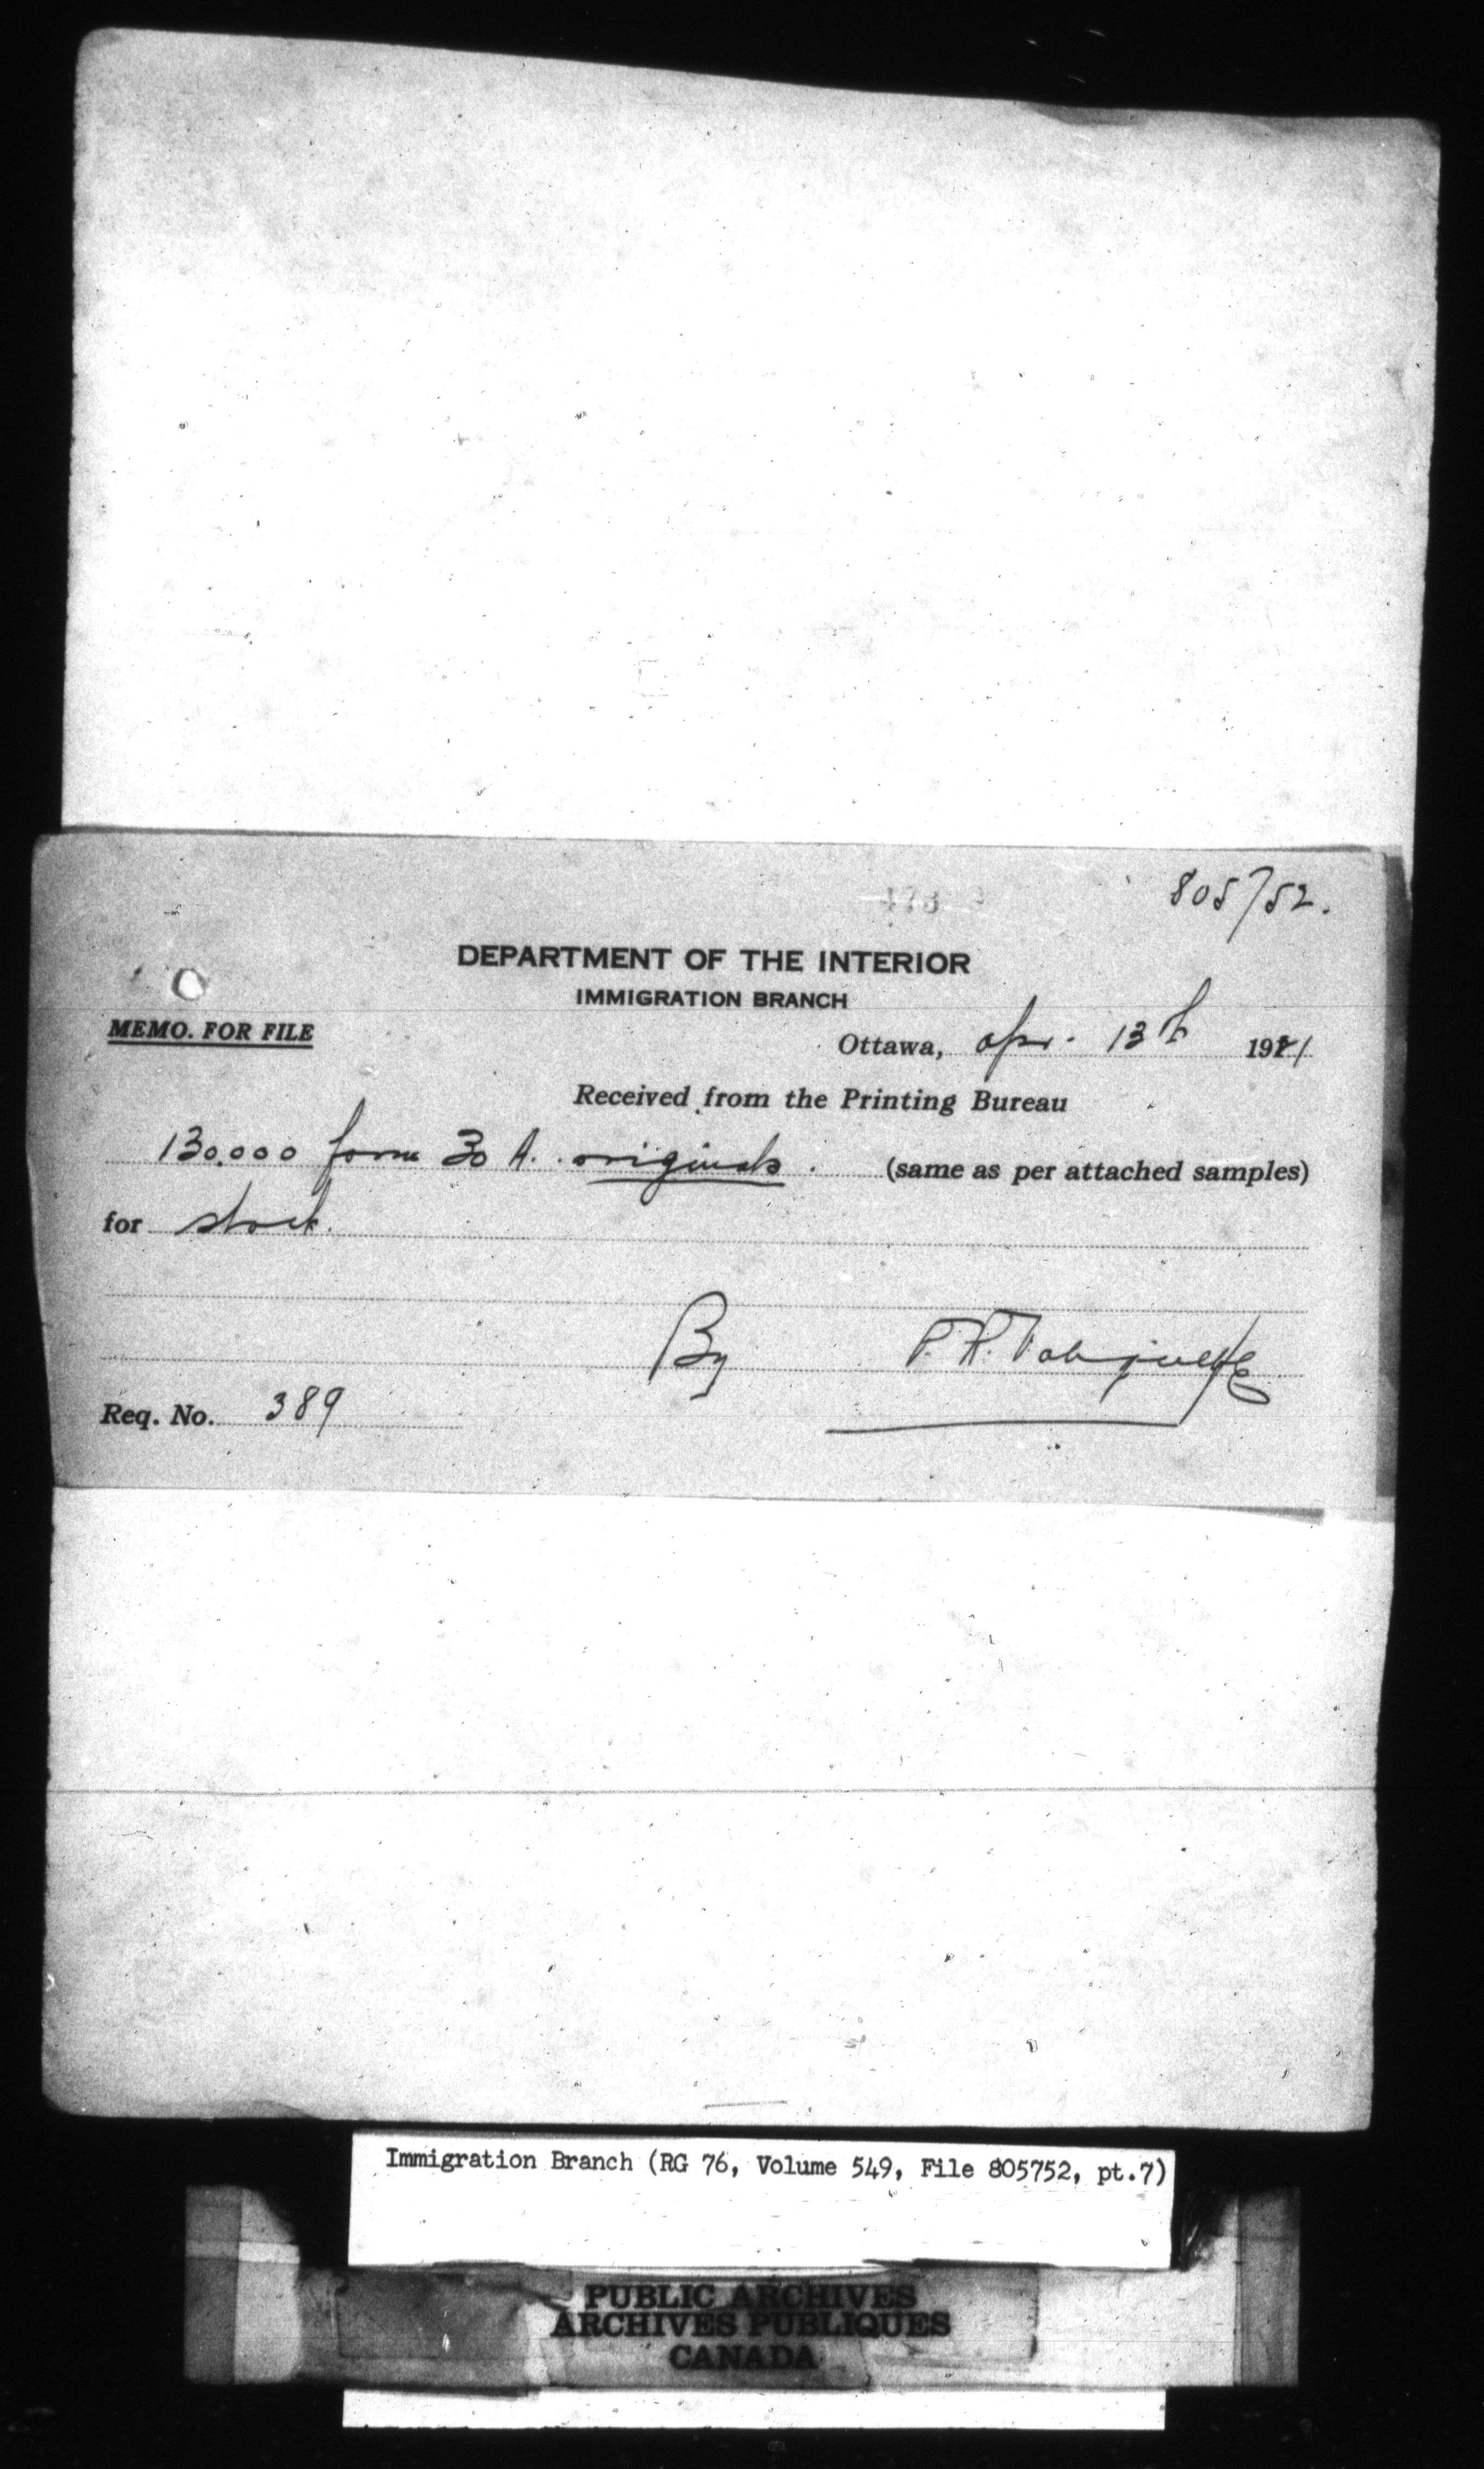 805752.
DEPARTMENT OF THE INTERIOR
IMMIGRATION BRANCH
MEMO. FOR FILE
Ottawa, Apr. 13th 1921
Received from the Printing Bureau
130,000 form 30 A. originals. (same as per attached samples)
for stock.
By P. R.
Req. No. 389
Immigration Branch (RG 76, Volume 549, File 805752, pt.7)
PUBLIC ARCHIVES
ARCHIVES PUBLIQUES
CANADA